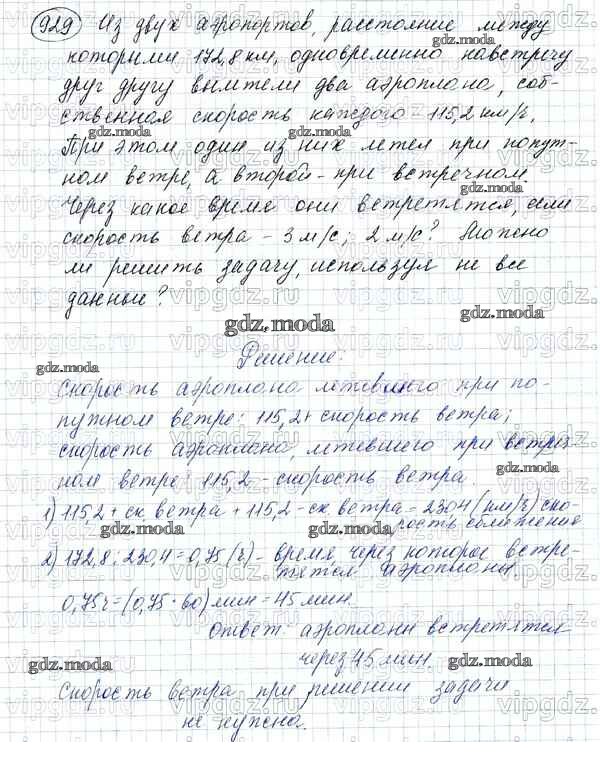 929 Из двух аэропортов, расстояние между
которыми 172,8 км, одновременно навстречу
друг другу вылетели два аэроплана, соб-
ственная скорость каждого - 115,2 км/ч.
При этом один из них летел при попут-
ном ветре, а второй - при встречном.
Через какое время они встретятся, если
скорость ветра - 3 м/с; 2 м/с? Можно
ли решить задачу, используя не все
данные?
Решение:
Скорость аэроплана летевшего при по-
путном ветре: 115,2 + скорость ветра;
скорость аэроплана, летевшего при встреч-
ном ветре: 115,2 - скорость ветра.
1) 115,2 + ск ветра + 115,2 - ск ветра = 230,4 (км/ч) ско-
рость сближения
2) 172,8 : 230,4 = 0,75 (ч) - время, через которое встре-
тятся аэропланы
0,75 ч = (0,75 · 60) мин = 45 мин.
Ответ: аэропланы встретятся
через 45 мин.
Скорость ветра при решении задачи
не нужна.
gdz.moda
vipgdz.ru